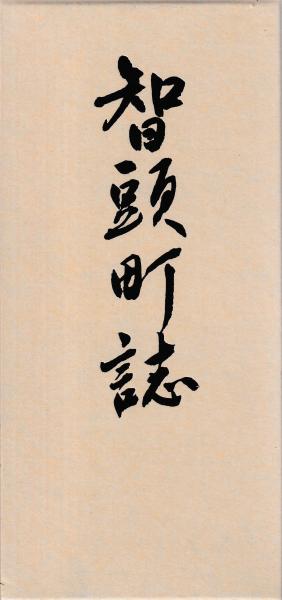 智頭町誌